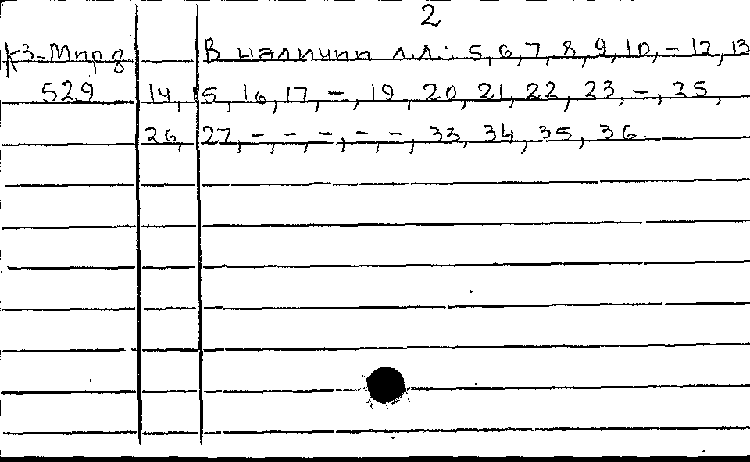 2
К3-Мпрд В наличии л.л.: 5, 6, 7, 8, 9, 10, - 12, 13
529 14, 15, 16, 17, -, 19, 20, 21, 22, 23, -, 25,
26, 27, -, -, -, -, -, 33, 34, 35, 36